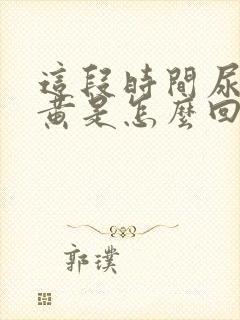 這段時間尿
黃是怎麼回
郭璞